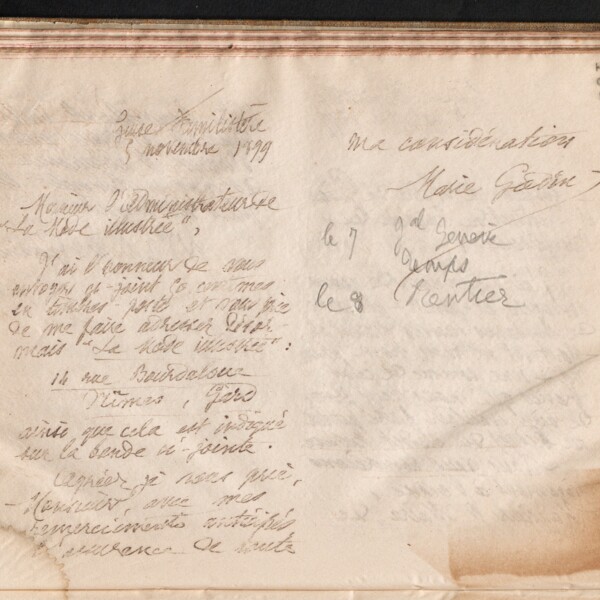 Guise Familistère
5 novembre 1899
Monsieur l'Administrateur de
"La Mode illustrée",
J'ai l'honneur de vous
envoyer ci-joint 50 centimes
en timbres-poste et vous prie
de me faire adresser désor-
mais "La Mode illustrée":
14 rue Bourdaloue
Nîmes, Gard
ainsi que cela est indiqué
sur la bande ci-jointe.
Agréez, je vous prie,
Monsieur, avec mes
remerciements anticipés
l'assurance de toute
ma considération
Marie Godin
le 7 Jal Genève
Temps
le 8 Rentier